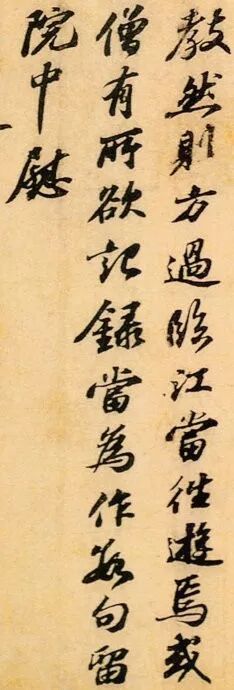 教然則方過臨江當往遊焉或
僧有所欲記錄當為作數句留
院中慰